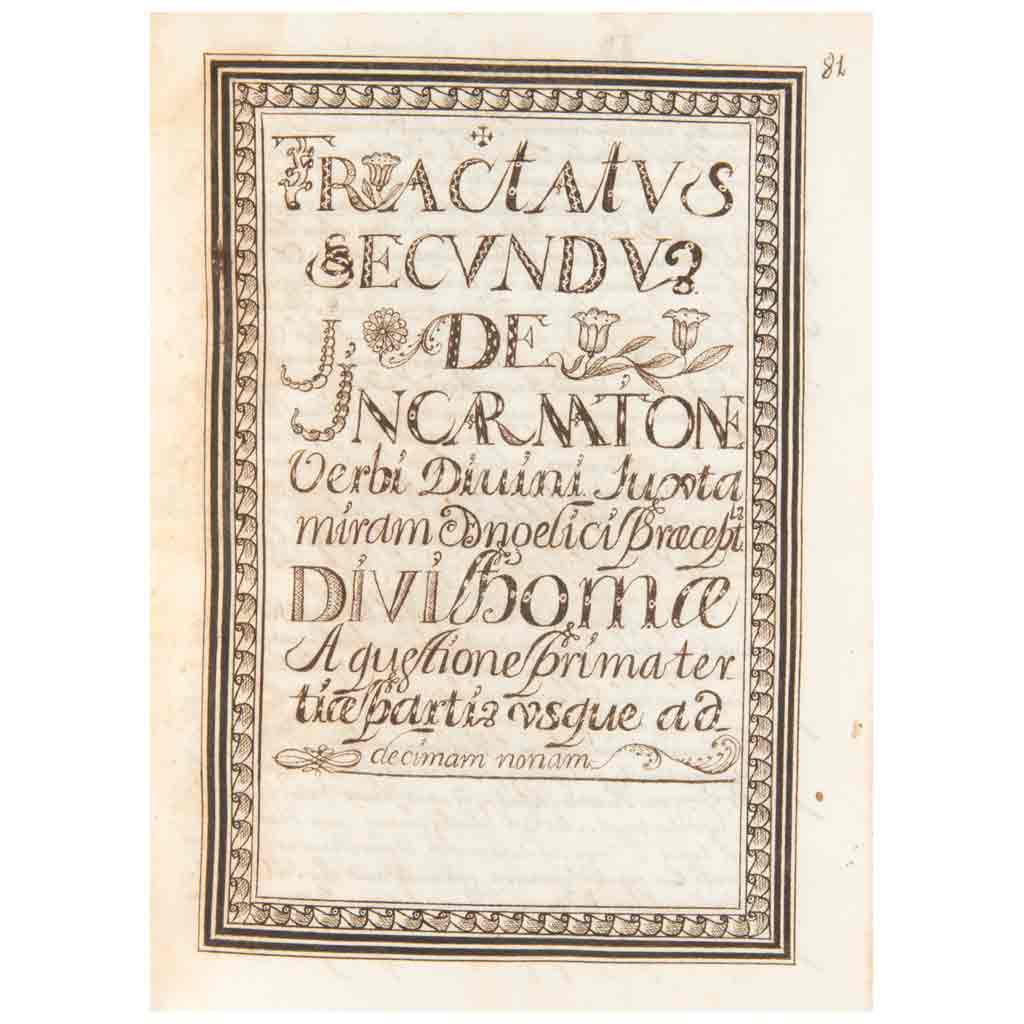 81
TRACTATVS
SECVNDVȝ
DE
INCARNATIONE
Verbi Diuini Juxta
miram Angelici Præcept.ˢ
DIVI Thomæ
A quęstione prima ter-
tiæ partis vsque ad
decimam nonam